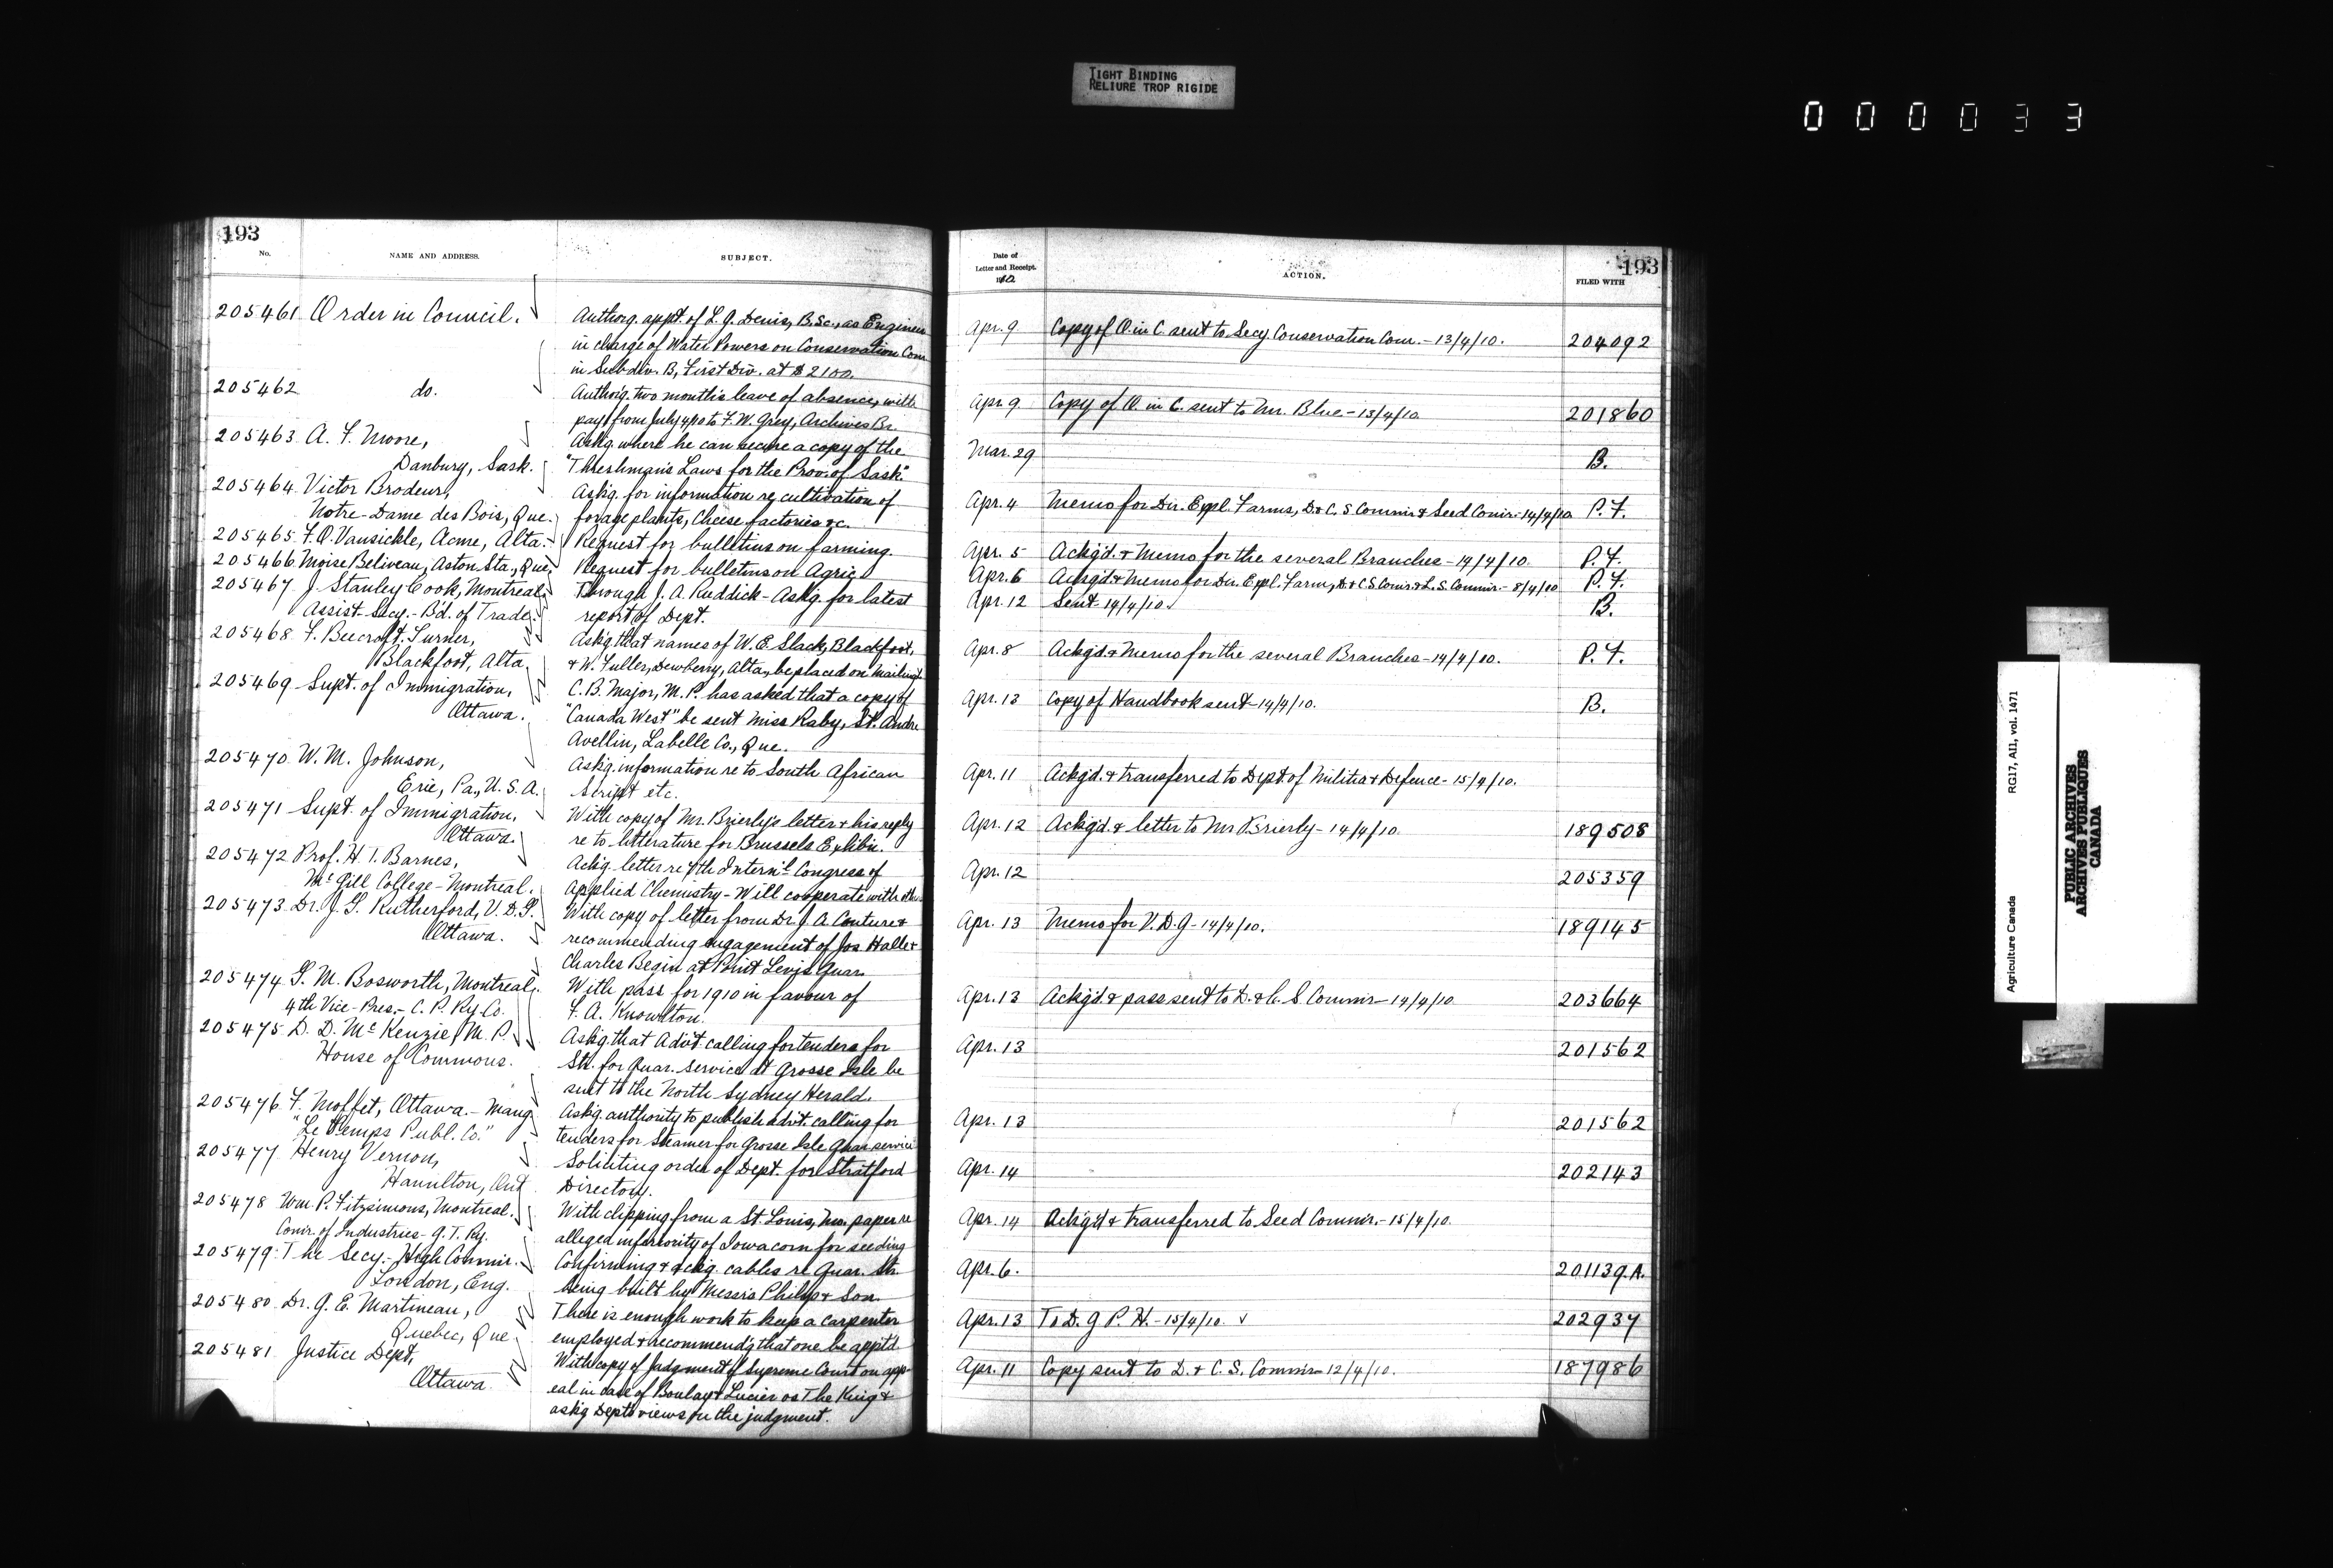 TIGHT BINDING
RELIURE TROP RIGIDE
0 0 0 0 3 3
193
No.
NAME AND ADDRESS.
SUBJECT.
205461 Order in Council.
Authorg. appt. of L. G. Denis, B.Sc., as Engineer
in charge of Water Powers on Conservation Com
in Subdiv. B, First Div. at $2100.
205462 do.
Authorg. two month's leave of absence, with
pay from July 4/10 to F. W. Grey, Archives Br.
205463 A. F. Moore,
Danbury, Sask.
Askg. where he can secure a copy of the
"Threshman's Laws for the Prov. of Sask."
205464 Victor Brodeur,
Notre-Dame des Bois, Que.
Askg. for information re cultivation of
forage plants, Cheese factories &c.
205465 F. O. Vansickle, Acme, Alta.
Request for bulletins on farming.
205466 Moise Beliveau, Aston Sta., Que.
Request for bulletins on Agric.
205467 J. Stanley Cook, Montreal
Assist. Secy. - B'd. of Trade.
Through J. A. Ruddick - Askg. for latest
report of Dept.
205468 F. Beecroft Turner,
Blackfoot, Alta.
Askg. that names of W. E. Slack, Blackfoot,
& W. Fuller, Dewberry, Alta., be placed on mailing
205469 Supt. of Immigration,
Ottawa.
C. B. Major, M. P. has asked that a copy of
"Canada West" be sent Miss Raby, St. Andre
Avellin, Labelle Co., Que.
205470 W. M. Johnson,
Erie, Pa., U. S. A.
Askg. information re to South African
Script etc.
205471 Supt. of Immigration,
Ottawa.
With copy of Mr. Brierly's letter & his reply
re to litterature for Brussels Exhibn.
205472 Prof. H. T. Barnes,
McGill College - Montreal.
Ackg. letter re 7th Intern'l Congress of
Applied Chemistry - Will cooperate with
205473 Dr. J. G. Rutherford, V. D. G.
Ottawa.
With copy of letter from Dr. J. A. Couture &
recommending engagement of Jos Halle &
Charles Begin at Point Levis Quar.
205474 G. M. Bosworth, Montreal.
4th Vice-Pres. - C. P. Ry. Co.
With pass for 1910 in favour of
F. A. Knowlton.
205475 D. D. McKenzie, M. P.
House of Commons.
Askg. that Advt. calling for tenders for
Str. for Quar. service at Grosse Isle be
sent to the North Sydney Herald.
205476 F. Moffet, Ottawa. - Mang
"Le Temps Publ. Co."
Askg. authority to publish advt. calling for
tenders for Steamer for Grosse Isle Quar. service
205477 Henry Vernon,
Hamilton, Ont
Soliciting order of Dept. for Stratford
Directory.
205478 Wm. P. Fitzsimons, Montreal.
Comr. of Industries - G. T. Ry.
With clipping from a St. Louis, Mo. paper re
alleged inferiority of Iowa corn for seeding
205479 The Secy. - High Commir.
London, Eng.
Confirming & ackg. cables re Quar. Str.
being built by Messrs Philip & Son.
205480 Dr. G. E. Martineau,
Quebec, Que
There is enough work to keep a carpenter
employed & recommend'g that one be appt'd.
205481 Justice Dept,
Ottawa.
With copy of judgment of Supreme Court on app-
eal in case of Boulay & Lucier vs The King &
askg Dept's views on the judgment.
193
Date of
Letter and Receipt.
1910
ACTION.
FILED WITH
Apr. 9 Copy of O. in C. sent to Secy. Conservation Com. - 13/4/10. 204092
Apr. 9 Copy of O. in C. sent to Mr. Blue - 13/4/10 201860
Mar. 29 B.
Apr. 4 Memo for Dir. Expl. Farms, D. & C. S. Commir & Seed Comir. - 14/4/10 P. F.
Apr. 5 Ackg'd. & Memo for the several Branches - 14/4/10. P. F.
Apr. 6 Ackg'd & Memo for Dir. Expl. Farm, D. & C. S. Comir. & L. S. Commir. - 8/4/10 P. F.
Apr. 12 Sent - 14/4/10 B.
Apr. 8 Ackg'd. & Memo for the several Branches - 14/4/10. P. F.
Apr. 13 Copy of Handbook sent - 14/4/10. B.
Apr. 11 Ackg'd. & transferred to Dept. of Militia & Defence - 15/4/10.
Apr. 12 Ackg'd. & letter to Mr Brierly - 14/4/10. 189508
Apr. 12 205359
Apr. 13 Memo for V. D. G - 14/4/10. 189145
Apr. 13 Ackg'd. & pass sent to D. & C. S Commir - 14/4/10 203664
Apr. 13 201562
Apr. 13 201562
Apr. 14 202143
Apr. 14 Ackg'd & transferred to Seed Commir. - 15/4/10
Apr. 6. 201139.A.
Apr. 13 To D. G P. H. - 15/4/10 202937
Apr. 11 Copy sent to D. & C. S. Commir - 12/4/10. 187986
Agriculture Canada RG17, AII, vol. 1471
PUBLIC ARCHIVES
ARCHIVES PUBLIQUES
CANADA